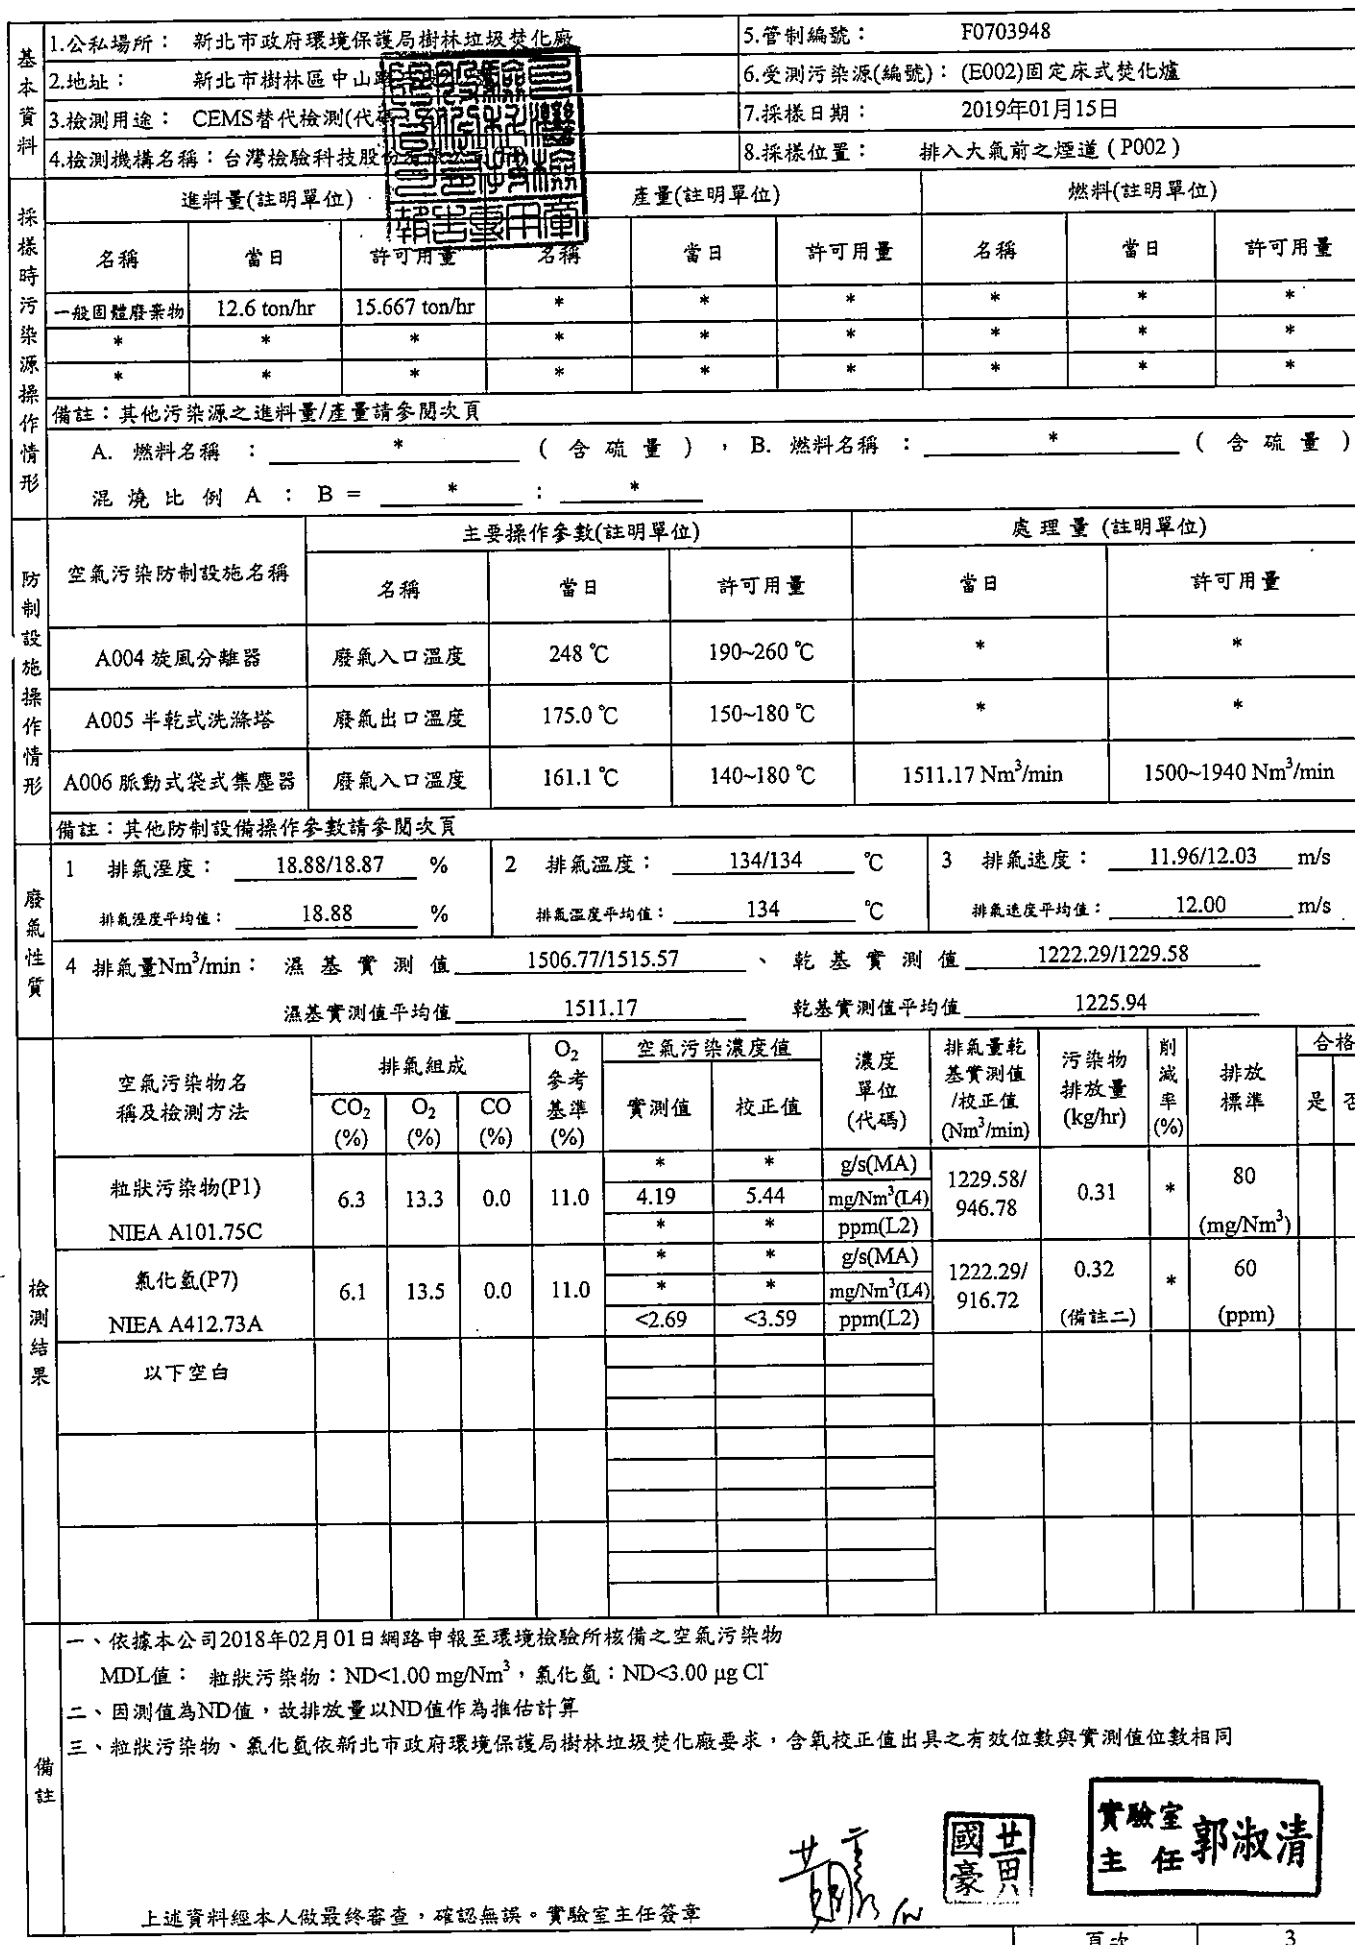 基本資料
1.公私場所： 新北市政府環境保護局樹林垃圾焚化廠 5.管制編號： F0703948
2.地址： 新北市樹林區中山 6.受測污染源(編號)： (E002)固定床式焚化爐
3.檢測用途： CEMS替代檢測(代 7.採樣日期： 2019年01月15日
4.檢測機構名稱：台灣檢驗科技股份 8.採樣位置： 排入大氣前之煙道 ( P002 )
採樣時污染源操作情形
進料量(註明單位) 產量(註明單位) 燃料(註明單位)
名稱 當日 許可用量 名稱 當日 許可用量 名稱 當日 許可用量
一般固體廢棄物 12.6 ton/hr 15.667 ton/hr * * * * * *
* * * * * * * * *
* * * * * * * * *
備註：其他污染源之進料量/產量請參閱次頁
A. 燃料名稱 ： * ( 含 硫 量 ) ，B. 燃料名稱 ： * ( 含 硫 量 )
混 燒 比 例 A ： B = * ： *
防制設施操作情形
空氣污染防制設施名稱 主要操作參數(註明單位) 處 理 量 (註明單位)
名稱 當日 許可用量 當日 許可用量
A004 旋風分離器 廢氣入口溫度 248 ℃ 190~260 ℃ * *
A005 半乾式洗滌塔 廢氣出口溫度 175.0 ℃ 150~180 ℃ * *
A006 脈動式袋式集塵器 廢氣入口溫度 161.1 ℃ 140~180 ℃ 1511.17 Nm³/min 1500~1940 Nm³/min
備註：其他防制設備操作參數請參閱次頁
廢氣性質
1 排氣溼度： 18.88/18.87 % 2 排氣溫度： 134/134 ℃ 3 排氣速度： 11.96/12.03 m/s
排氣溼度平均值： 18.88 % 排氣溫度平均值： 134 ℃ 排氣速度平均值： 12.00 m/s
4 排氣量Nm³/min： 濕 基 實 測 值 1506.77/1515.57 、 乾 基 實 測 值 1222.29/1229.58
濕基實測值平均值 1511.17 乾基實測值平均值 1225.94
檢測結果
空氣污染物名稱及檢測方法 排氣組成 O₂參考基準(%) 空氣污染濃度值 濃度單位(代碼) 排氣量乾基實測值/校正值(Nm³/min) 污染物排放量(kg/hr) 削減率(%) 排放標準 合格
CO₂(%) O₂(%) CO(%) 實測值 校正值 是 否
粒狀污染物(P1) NIEA A101.75C 6.3 13.3 0.0 11.0 * * g/s(MA) 1229.58/946.78 0.31 * 80 (mg/Nm³)
4.19 5.44 mg/Nm³(L4)
* * ppm(L2)
氯化氫(P7) NIEA A412.73A 6.1 13.5 0.0 11.0 * * g/s(MA) 1222.29/916.72 0.32 (備註二) * 60 (ppm)
* * mg/Nm³(L4)
<2.69 <3.59 ppm(L2)
以下空白
備註
一、依據本公司2018年02月01日網路申報至環境檢驗所核備之空氣污染物
MDL值： 粒狀污染物：ND<1.00 mg/Nm³，氯化氫：ND<3.00 µg Cl⁻
二、因測值為ND值，故排放量以ND值作為推估計算
三、粒狀污染物、氯化氫依新北市政府環境保護局樹林垃圾焚化廠要求，含氧校正值出具之有效位數與實測值位數相同
實驗室主任 郭淑清
黃國豪
上述資料經本人做最終審查，確認無誤。實驗室主任簽章
頁次 3